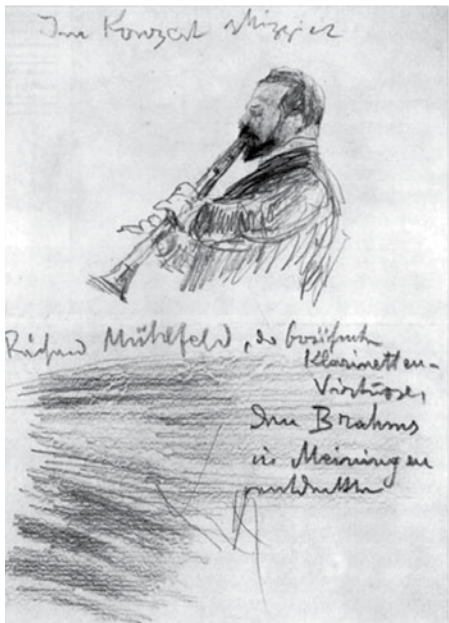 Im Konzert skizziert
Richard Mühlfeld, der berühmte
Klarinetten-
Virtuose,
den Brahms
in Meiningen
entdeckte